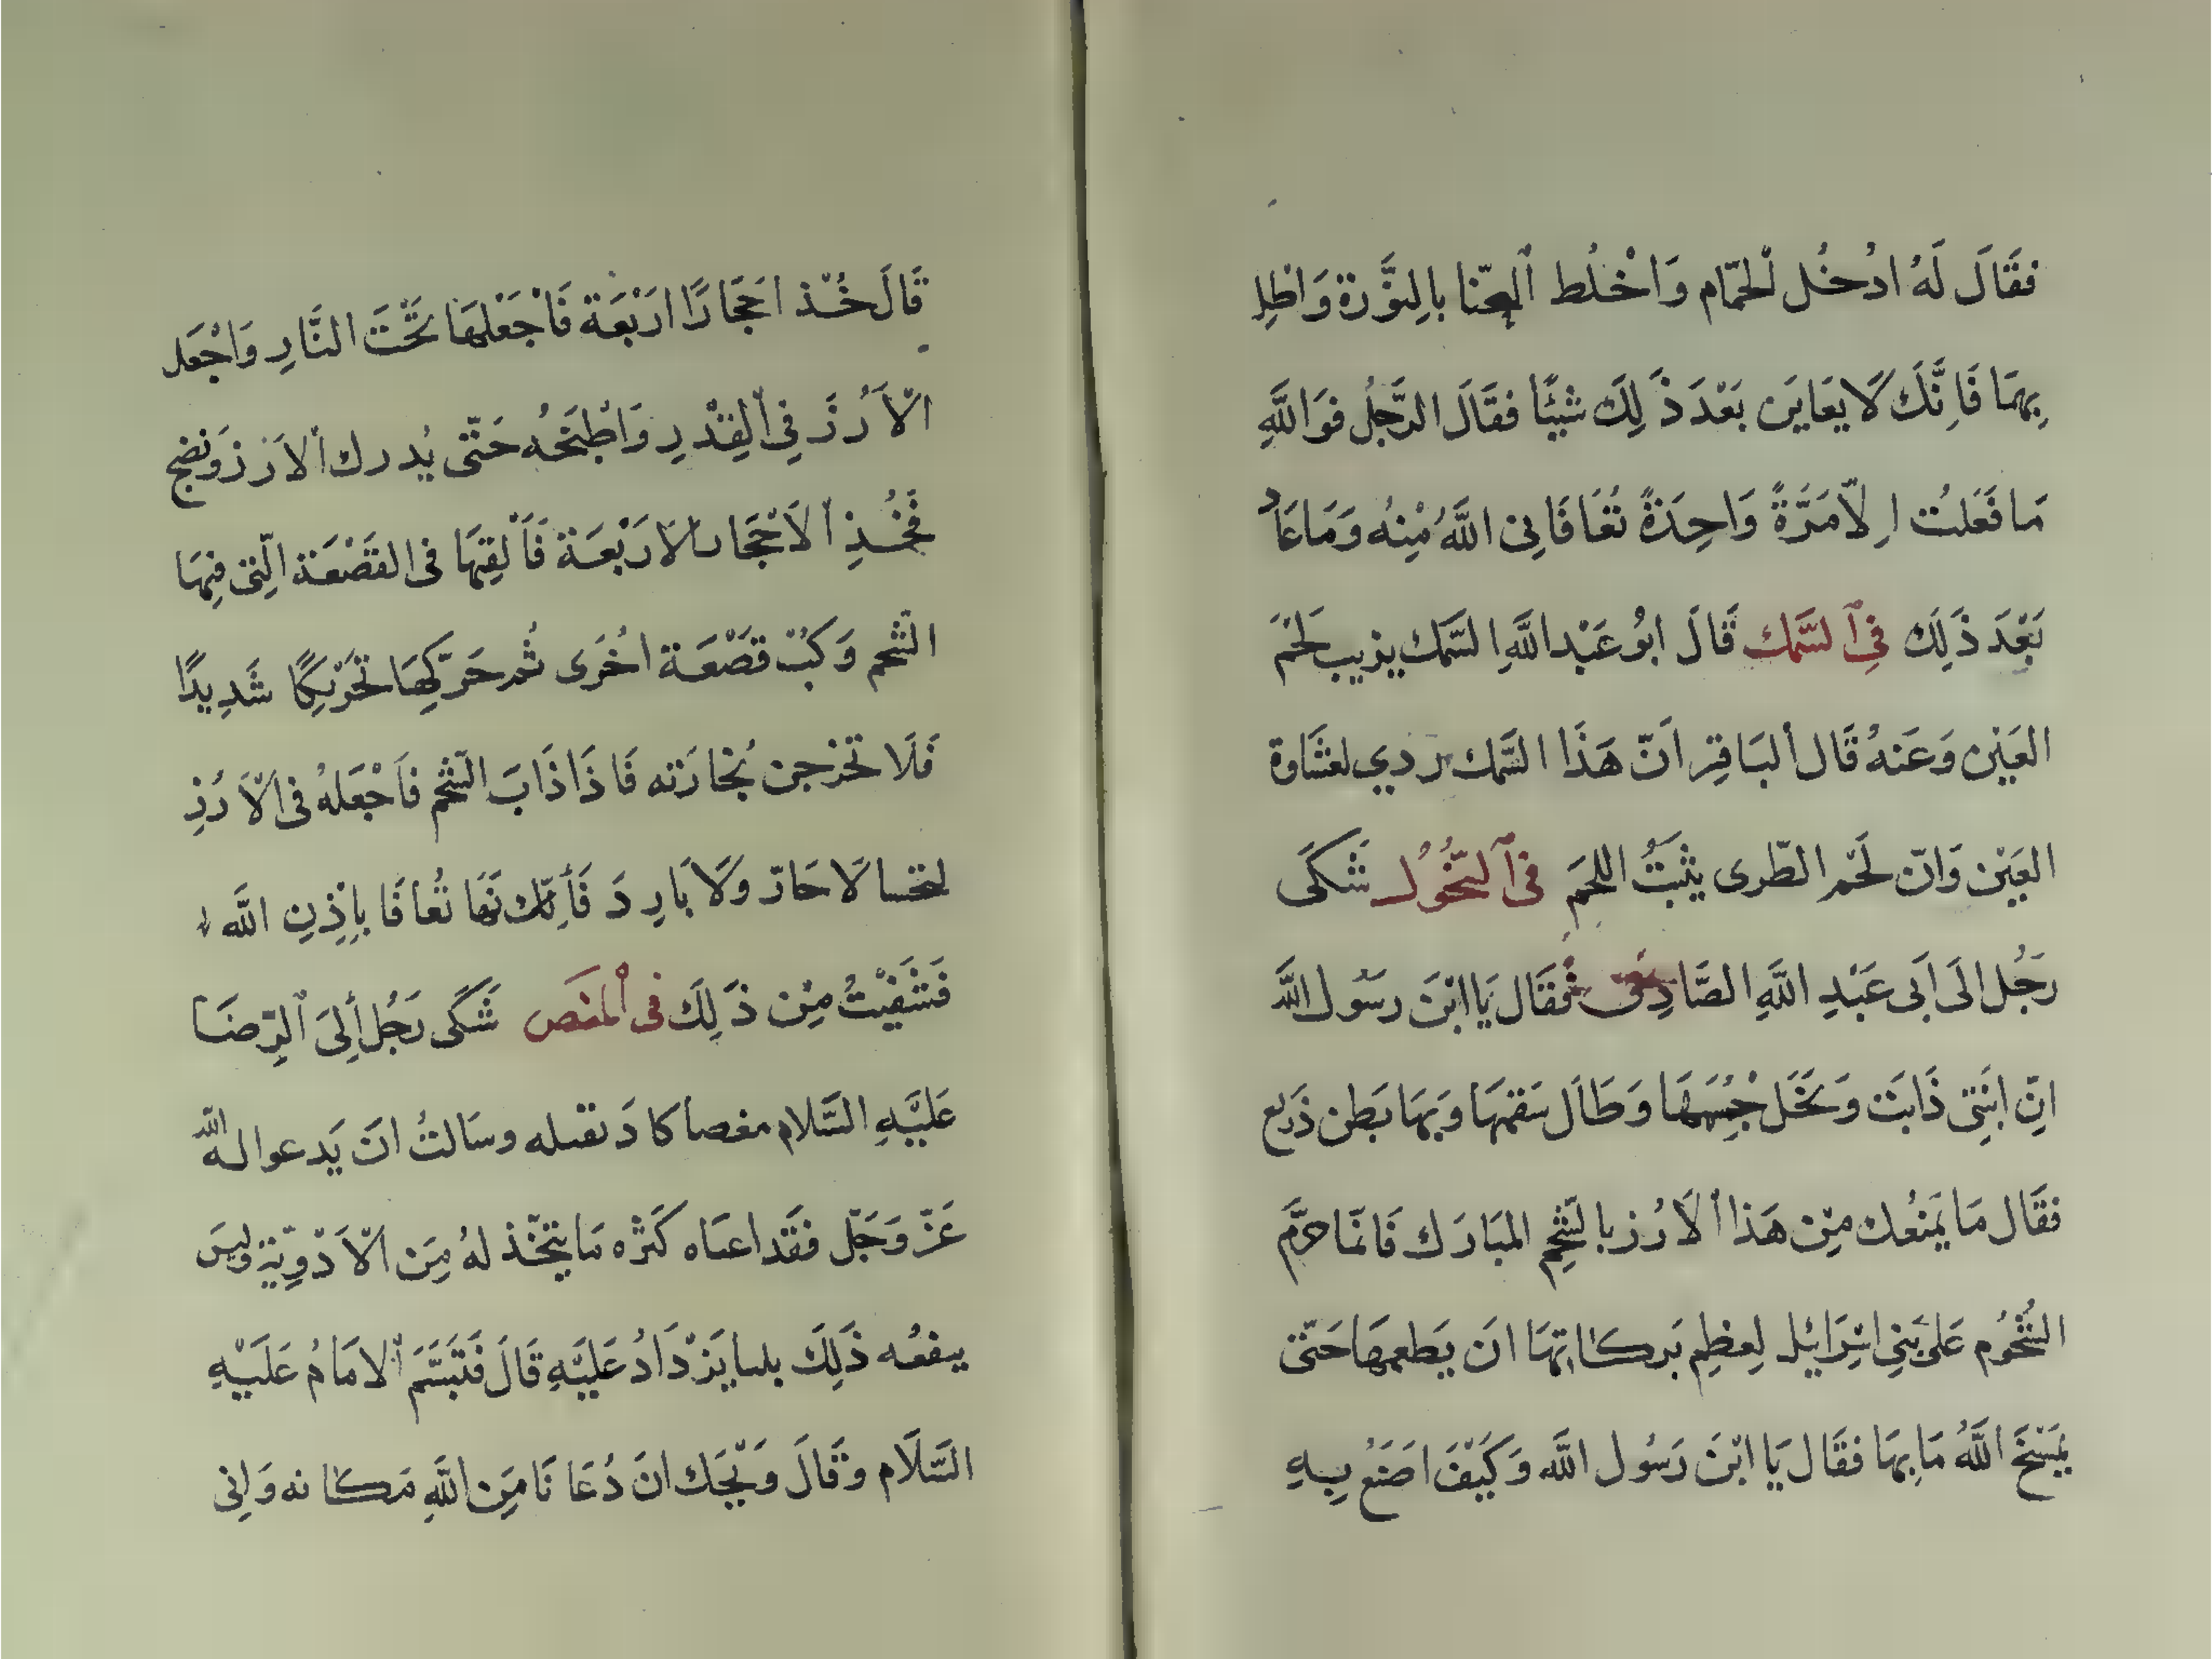 فَقَالَ لَهُ ادْخُل الْحَمّام وَاخْلُط الحنّا بالِنوَّرة وَاطْلِ
بِهِمَا فَاِنَّكَ لَا يعَايَن بَعْدَ ذَلِكَ شيئًا فقَالَ الرَّجُل فوَاللَّهِ
مَا فَعَلتُ اِلّا مَرَّةً وَاحِدَةً تُعَافَانِى اللَّهُ مِنْهُ وَمَا عَاد
بَعْدَ ذَلِك فِى السَّمك قَالَ ابُو عَبْدِ اللَّهِ السَّمك يزيب لَحْمَ
العَيْن وَعَنهُ قَال البَاقِر اَنّ هَذَا السَّمك بردي لغشَاوة
العَيْن وَانّ لَحْم الطّرى يثْبَتُ اللحمَ فى النُّحُول شَكَى
رَجُل الَى اَبى عَبْدِ اللَّهِ الصَّادِق فَقَال يَا ابْنَ رسَوُل اللَّه
انِّ ابنَتِى ذَابَت وَنَحَل جْسَمَهَا وَطَالَ سَقمهَا وَبِهَا بَطن ذَريع
فقَال مَا يَمنَعُك مِن هَذا الاَرُز بالشّحِم المبَارَك فَانمَّا حرَّم
الشُّحُوم عَلى بَنِى اسْرَائيل لِعظِم بَركاتِهَا انَ يَطعمهَا حَتّى
يَمْسَخَ اللَّهُ مَا بِهَا فقَال يَا ابْنَ رَسُول اللَّه وَكَيْفَ اصَنَعُ بِهِ
قَالَ خُذ احَجَارًا ارَبْعَة فَاجْعَلهَا تَحْتَ النَّارِ وَاجْعَل
الاَرُزَ فِى القِدْرِ وَاطْبَخُه حَتّى يُدرك الاَرَز وَنضج
فَخُذِ الاَحْجَار الارَبْعَة فَاَلقِهَا فى القَصْعَة الّتِى فِيهَا
الشّحم وَكبْ قَصْعَة اخُرَى ثُم حَرّكِهَا تَحْرْيكًا شَدِيدًا
فَلَا تَخرجن بُخارَته فَاذَا ذَابَ الشّحم فَاجْعَلهُ فى الاَرُزِ
لتحسا لَا حَارّ وَلا بَارِدَ فَأِنّك نهَا تُعافَا بِاِذِنِ اللَّه
فَشَفَيْتُ مِنْ ذَلِكَ فى المغَص شَكَى رَجُل أِلىَ الرِّضَا
عَليَهِ السَّلام مغصاً كادَ تقتله وسَالتُ انَ يَدعوا له اللَّه
عَزّ وَجَلّ فقَد اعيَاه كَثره مَا يتخّذ لهُ مِنَ الاَدْوِيَة وليسَ
ينفعُه ذَلِكَ بلما يَزْدَادُ عَليَهِ قَالَ فَتَبَسَّمَ الامَامُ عَلَيْهِ
السَّلَام وقَالَ وَيْحَك انَ دُعَانَا مَن اللَّهِ مَكانه وَانِى